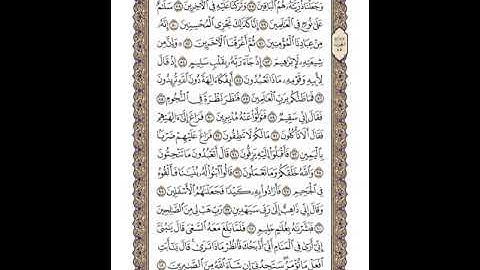 وَجَعَلْنَا ذُرِّيَّتَهُۥ هُمُ ٱلْبَاقِينَ ٧٧ وَتَرَكْنَا عَلَيْهِ فِى ٱلْءَاخِرِينَ ٧٨ سَلَٰمٌ
عَلَىٰ نُوحٍ فِى ٱلْعَٰلَمِينَ ٧٩ إِنَّا كَذَٰلِكَ نَجْزِى ٱلْمُحْسِنِينَ ٨٠ إِنَّهُۥ
مِنْ عِبَادِنَا ٱلْمُؤْمِنِينَ ٨١ ثُمَّ أَغْرَقْنَا ٱلْءَاخَرِينَ ٨٢ وَإِنَّ مِن
شِيعَتِهِۦ لَإِبْرَٰهِيمَ ٨٣ إِذْ جَآءَ رَبَّهُۥ بِقَلْبٍ سَلِيمٍ ٨٤ إِذْ قَالَ
لِأَبِيهِ وَقَوْمِهِۦ مَاذَا تَعْبُدُونَ ٨٥ أَئِفْكًا ءَالِهَةً دُونَ ٱللَّهِ تُرِيدُونَ
٨٦ فَمَا ظَنُّكُم بِرَبِّ ٱلْعَٰلَمِينَ ٨٧ فَنَظَرَ نَظْرَةً فِى ٱلنُّجُومِ
٨٨ فَقَالَ إِنِّى سَقِيمٌ ٨٩ فَتَوَلَّوْا۟ عَنْهُ مُدْبِرِينَ ٩٠ فَرَاغَ إِلَىٰٓ ءَالِهَتِهِمْ
فَقَالَ أَلَا تَأْكُلُونَ ٩١ مَا لَكُمْ لَا تَنطِقُونَ ٩٢ فَرَاغَ عَلَيْهِمْ ضَرْبًۢا
بِٱلْيَمِينِ ٩٣ فَأَقْبَلُوٓا۟ إِلَيْهِ يَزِفُّونَ ٩٤ قَالَ أَتَعْبُدُونَ مَا تَنْحِتُونَ
٩٥ وَٱللَّهُ خَلَقَكُمْ وَمَا تَعْمَلُونَ ٩٦ قَالُوا۟ ٱبْنُوا۟ لَهُۥ بُنْيَٰنًا فَأَلْقُوهُ
فِى ٱلْجَحِيمِ ٩٧ فَأَرَادُوا۟ بِهِۦ كَيْدًا فَجَعَلْنَٰهُمُ ٱلْأَسْفَلِينَ ٩٨
وَقَالَ إِنِّى ذَاهِبٌ إِلَىٰ رَبِّى سَيَهْدِينِ ٩٩ رَبِّ هَبْ لِى مِنَ ٱلصَّٰلِحِينَ
١٠٠ فَبَشَّرْنَٰهُ بِغُلَٰمٍ حَلِيمٍ ١٠١ فَلَمَّا بَلَغَ مَعَهُ ٱلسَّعْىَ قَالَ يَٰبُنَىَّ
إِنِّىٓ أَرَىٰ فِى ٱلْمَنَامِ أَنِّىٓ أَذْبَحُكَ فَٱنظُرْ مَاذَا تَرَىٰ قَالَ يَٰٓأَبَتِ
ٱفْعَلْ مَا تُؤْمَرُ سَتَجِدُنِىٓ إِن شَآءَ ٱللَّهُ مِنَ ٱلصَّٰبِرِينَ ١٠٢